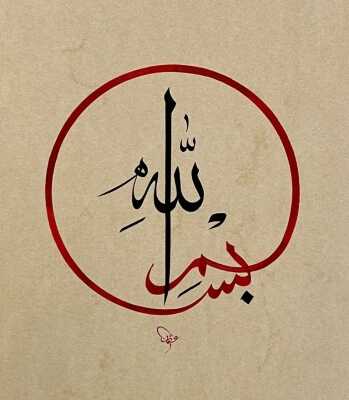 بسمِ اللّٰهِ